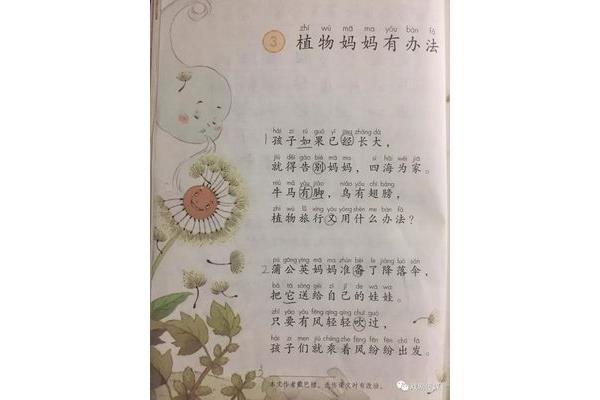 zhí wù mā ma yǒu bàn fǎ
3 植物妈妈有办法
hái zi rú guǒ yǐ jīng zhǎng dà
1 孩子如果已经长大，
jiù děi gào bié mā ma sì hǎi wéi jiā
就得告别妈妈，四海为家。
niú mǎ yǒu jiǎo niǎo yǒu chì bǎng
牛马有脚，鸟有翅膀，
zhí wù lǚ xíng yòu yòng shén me bàn fǎ
植物旅行又用什么办法？
pú gōng yīng mā ma zhǔn bèi le jiàng luò sǎn
2 蒲公英妈妈准备了降落伞，
bǎ tā sòng gěi zì jǐ de wá wa
把它送给自己的娃娃。
zhǐ yào yǒu fēng qīng qīng chuī guò
只要有风轻轻吹过，
hái zi men jiù chéng zhe fēng fēn fēn chū fā
孩子们就乘着风纷纷出发。
本文作者戴巴棣，选作课文时有改动。